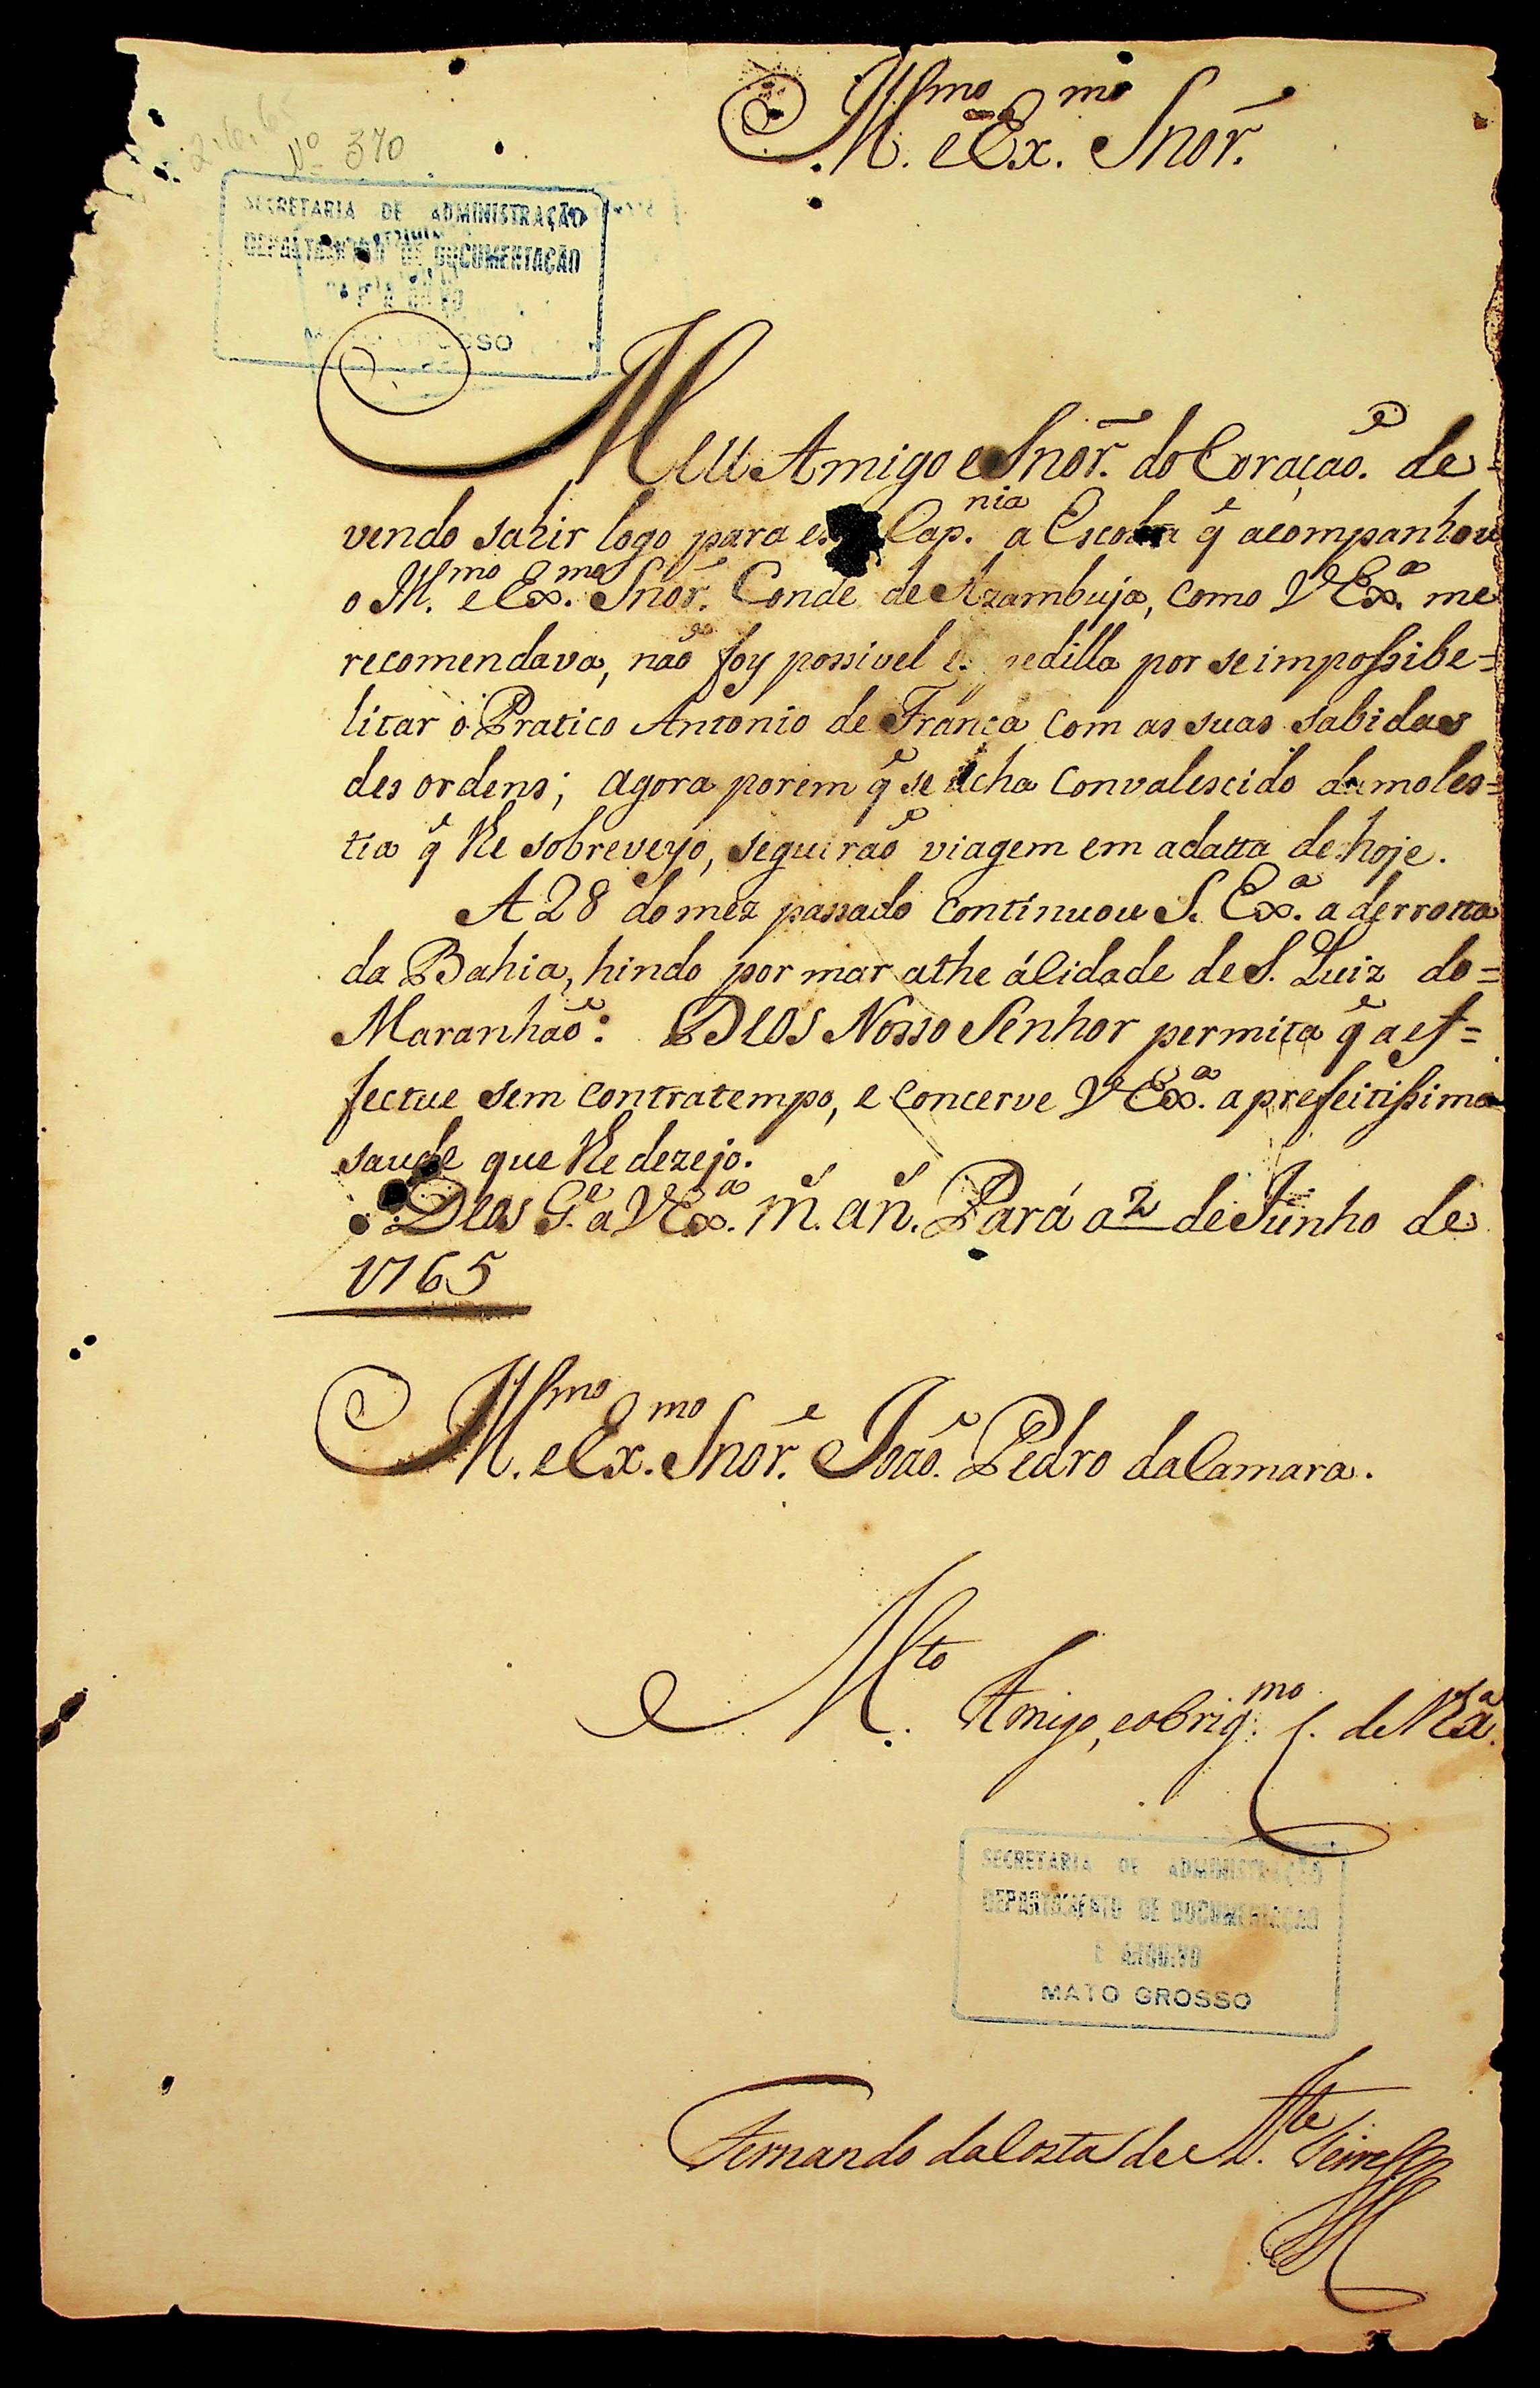 2.6.65
Nº 370
Ill.mo e Ex.mo Snor.
SECRETARIA DE ADMINISTRAÇÃO
DEPARTAMENTO DE DOCUMENTAÇÃO
MATO GROSSO
Meu Amigo e Snor. do Coração. de=
vendo sahir logo para es Cap.nia a Escolta q̃ acompanhou
o Ill.mo e Ex.mo Snor. Conde de Azambuja, como V Ex.a me
recomendava, não foy possivel e pedilla por se impossibe=
litar o Pratico Antonio de França com as suas sabidas
des ordens; agora porem q̃ se acha convalescido da moles=
tia q̃ lhe sobreveyo, seguirão viagem em adatta de hoje.
A 28 do mez passado continuou S. Ex.a a derrotta
da Bahia, hindo por mar athe á Cidade de S. Luiz do=
Maranhão: DEOS Nosso Senhor permita q̃ a ef=
fectue sem contratempo, e concerve V Ex.a a prefeitissima
saude que lhe dezejo.
Deos G.e a V Ex.a m. an. Pará a 2 de Junho de
1765
Ill.mo e Ex.mo Snor. João Pedro da Camara.
M.to Amigo, e obrig.mo C. de V Ex.a
SECRETARIA DE ADMINISTRAÇÃO
DEPARTAMENTO DE DOCUMENTAÇÃO
E ARQUIVO
MATO GROSSO
Fernando da Costa de At.de Teive